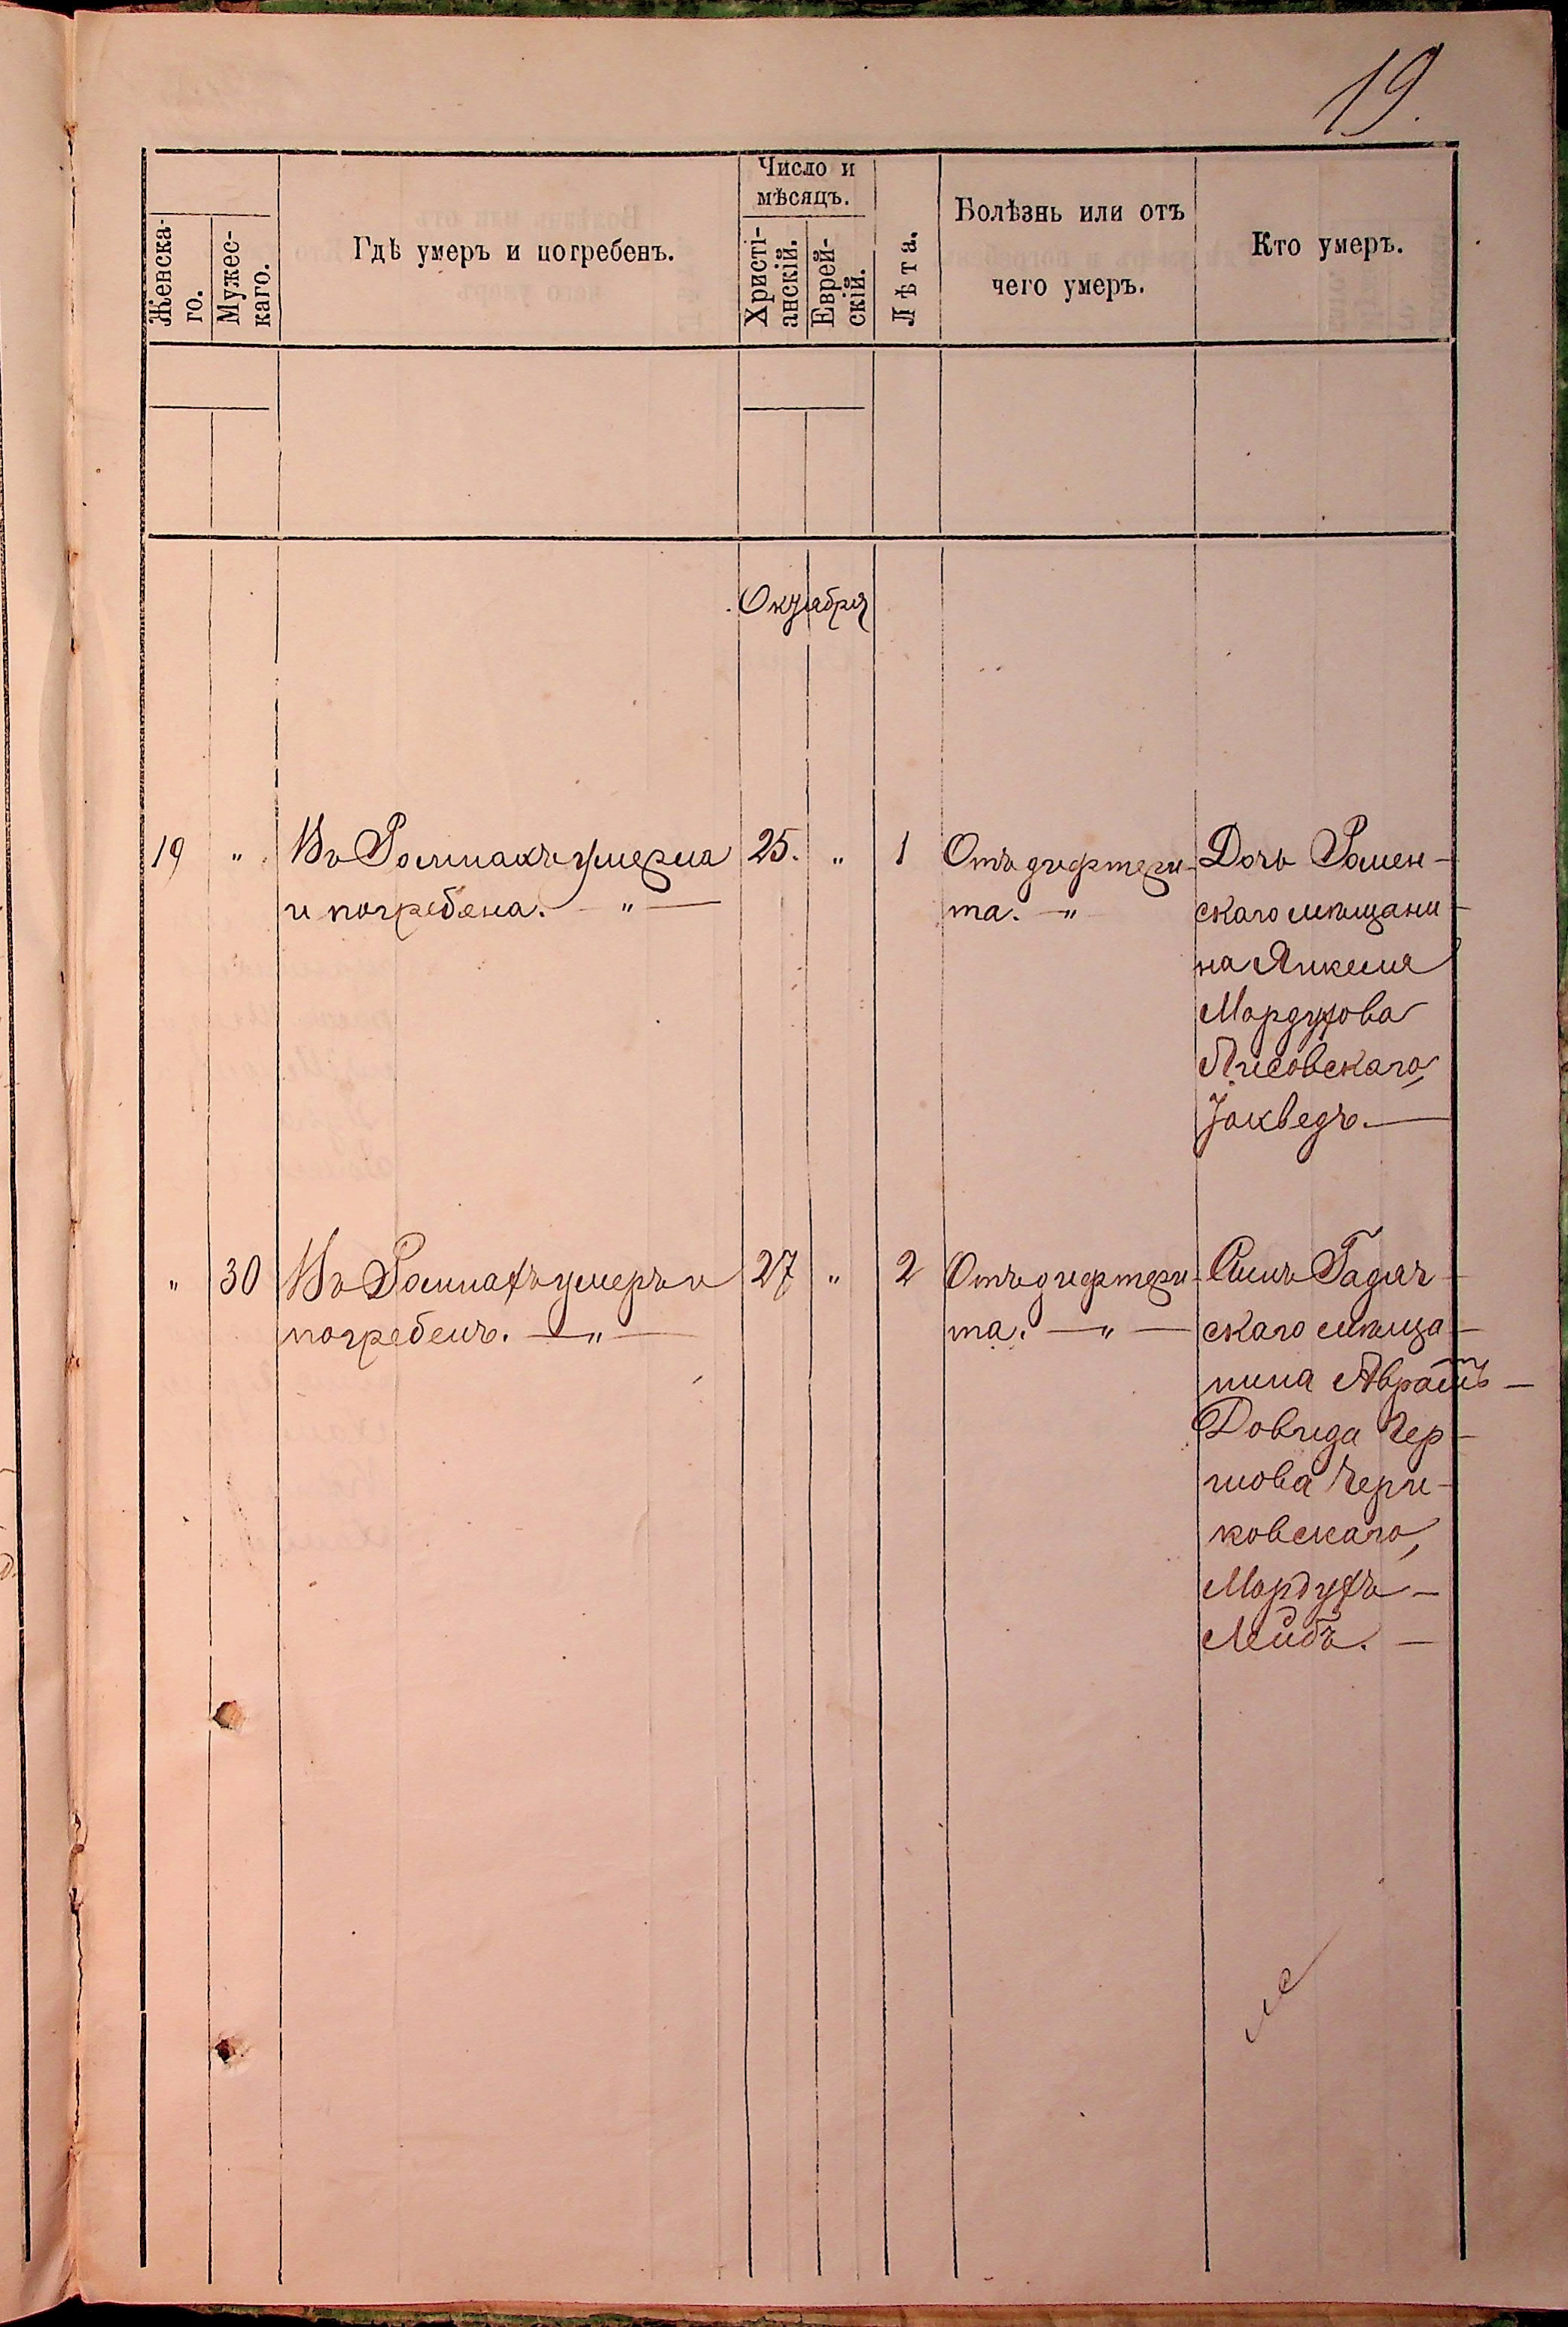 19.
Женска-
го.
Мужес-
каго.
Гдѣ умеръ и погребенъ.
Число и
мѣсяцъ.
Христі-
анскій.
Еврей-
скій.
Лѣта.
Болѣзнь или отъ
чего умеръ.
Кто умеръ.
Октября
19 " Въ Ромнахъ умерла 25. " 1 Отъ дифтери- Дочь Ромен-
и погребена. — " — та. — " скаго мѣщани-
на Янкеля
Мордухова
Лисовскаго,
Іохведъ. —
" 30 Въ Ромнахъ умеръ и 27 " 2 Отъ дифтери- Сынъ Гадяч-
погребенъ. — " — та. — " — скаго мѣща-
нина Аврамъ-
Довида Гер-
шова Чери-
ковскаго,
Мордухъ-
Лейбъ. —